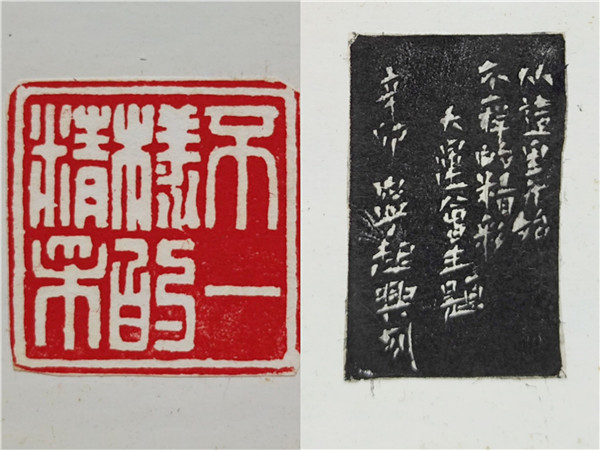 不一
樣的
精采
从這里开始
不一樣的精彩
大運會主題
辛卯 超興刻